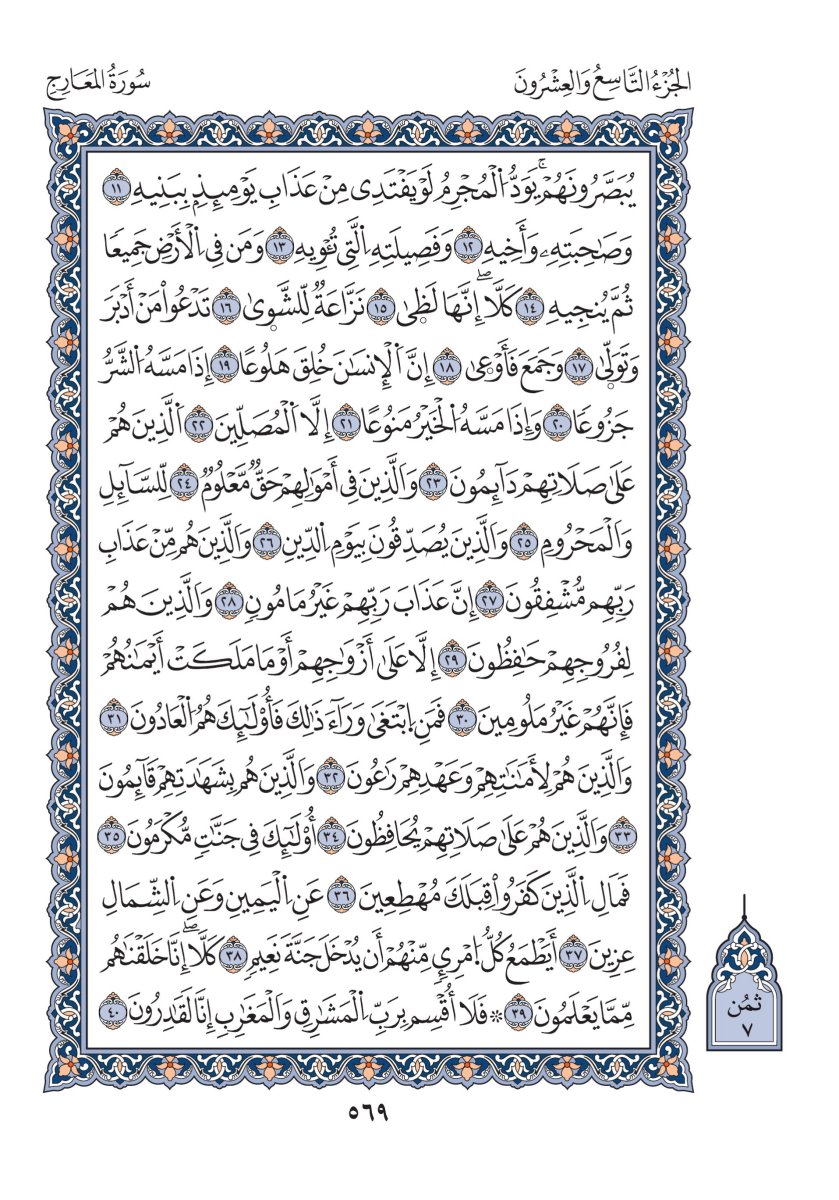 الجُزْءُ التَّاسِعُ وَالعِشْرُونَ
سُورَةُ المَعَارِجِ
يُبَصَّرُونَهُمْۚ يَوَدُّ اُ۬لْمُجْرِمُ لَوْ يَفْتَدِى مِنْ عَذَابِ يَوْمَئِذِۢ بِبَنِيهِ ١١
وَصَٰحِبَتِهِۦ وَأَخِيهِ ١٢ وَفَصِيلَتِهِ اِ۬لَّتِى تُـْٔوِيهِ ١٣ وَمَن فِى اِ۬لْأَرْضِ جَمِيعٗا
ثُمَّ يُنجِيهِ ١٤ كَلَّاۖ إِنَّهَا لَظۭىٰ ١٥ نَزَّاعَةٞ لِّلشَّوۭىٰ ١٦ تَدْعُواْ مَنْ أَدْبَرَ
وَتَوَلّۭىٰ ١٧ وَجَمَعَ فَأَوْعۭىٰ ١٨ إِنَّ اَ۬لْإِنسَٰنَ خُلِقَ هَلُوعًا ١٩ إِذَا مَسَّهُ اُ۬لشَّرُّ
جَزُوعٗا ٢٠ وَإِذَا مَسَّهُ اُ۬لْخَيْرُ مَنُوعًا ٢١ إِلَّا اَ۬لْمُصَلِّينَ ٢٢ اَ۬لَّذِينَ هُمْ
عَلَىٰ صَلَاتِهِمْ دَآئِمُونَ ٢٣ وَالَّذِينَ فِى أَمْوَٰلِهِمْ حَقّٞ مَّعْلُومٞ ٢٤ لِّلسَّآئِلِ
وَالْمَحْرُومِ ٢٥ وَالَّذِينَ يُصَدِّقُونَ بِيَوْمِ اِ۬لدِّينِ ٢٦ وَالَّذِينَ هُم مِّنْ عَذَابِ
رَبِّهِم مُّشْفِقُونَ ٢٧ إِنَّ عَذَابَ رَبِّهِمْ غَيْرُ مَامُونٖ ٢٨ وَالَّذِينَ هُمْ
لِفُرُوجِهِمْ حَٰفِظُونَ ٢٩ إِلَّا عَلَىٰ أَزْوَٰجِهِمْ أَوْ مَا مَلَكَتْ أَيْمَٰنُهُمْ
فَإِنَّهُمْ غَيْرُ مَلُومِينَ ٣٠ فَمَنِ اِ۪بْتَغَىٰ وَرَآءَ ذَٰلِكَ فَأُوْلَٰٓئِكَ هُمُ اُ۬لْعَادُونَ ٣١
وَالَّذِينَ هُمْ لِأَمَٰنَٰتِهِمْ وَعَهْدِهِمْ رَٰعُونَ ٣٢ وَالَّذِينَ هُم بِشَهَٰدَتِهِمْ قَآئِمُونَ
٣٣ وَالَّذِينَ هُمْ عَلَىٰ صَلَاتِهِمْ يُحَافِظُونَ ٣٤ أُوْلَٰٓئِكَ فِى جَنَّٰتٖ مُّكْرَمُونَ ٣٥
فَمَالِ اِ۬لَّذِينَ كَفَرُواْ قِبَلَكَ مُهْطِعِينَ ٣٦ عَنِ اِ۬لْيَمِينِ وَعَنِ اِ۬لشِّمَالِ
عِزِينَ ٣٧ أَيَطْمَعُ كُلُّ اُ۪مْرِيٕٖ مِّنْهُمْ أَن يُدْخَلَ جَنَّةَ نَعِيمٖ ٣٨ كَلَّاۖ إِنَّا خَلَقْنَٰهُم
مِّمَّا يَعْلَمُونَ ٣٩ ۞ فَلَا أُقْسِم بِرَبِّ اِ۬لْمَشَٰرِقِ وَالْمَغَٰرِبِ إِنَّا لَقَٰدِرُونَ ٤٠
ثُمُن
٧
٥٦٩